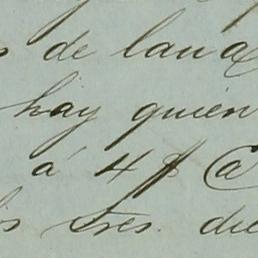 de lana
hay quien
á 4 $
tres. die